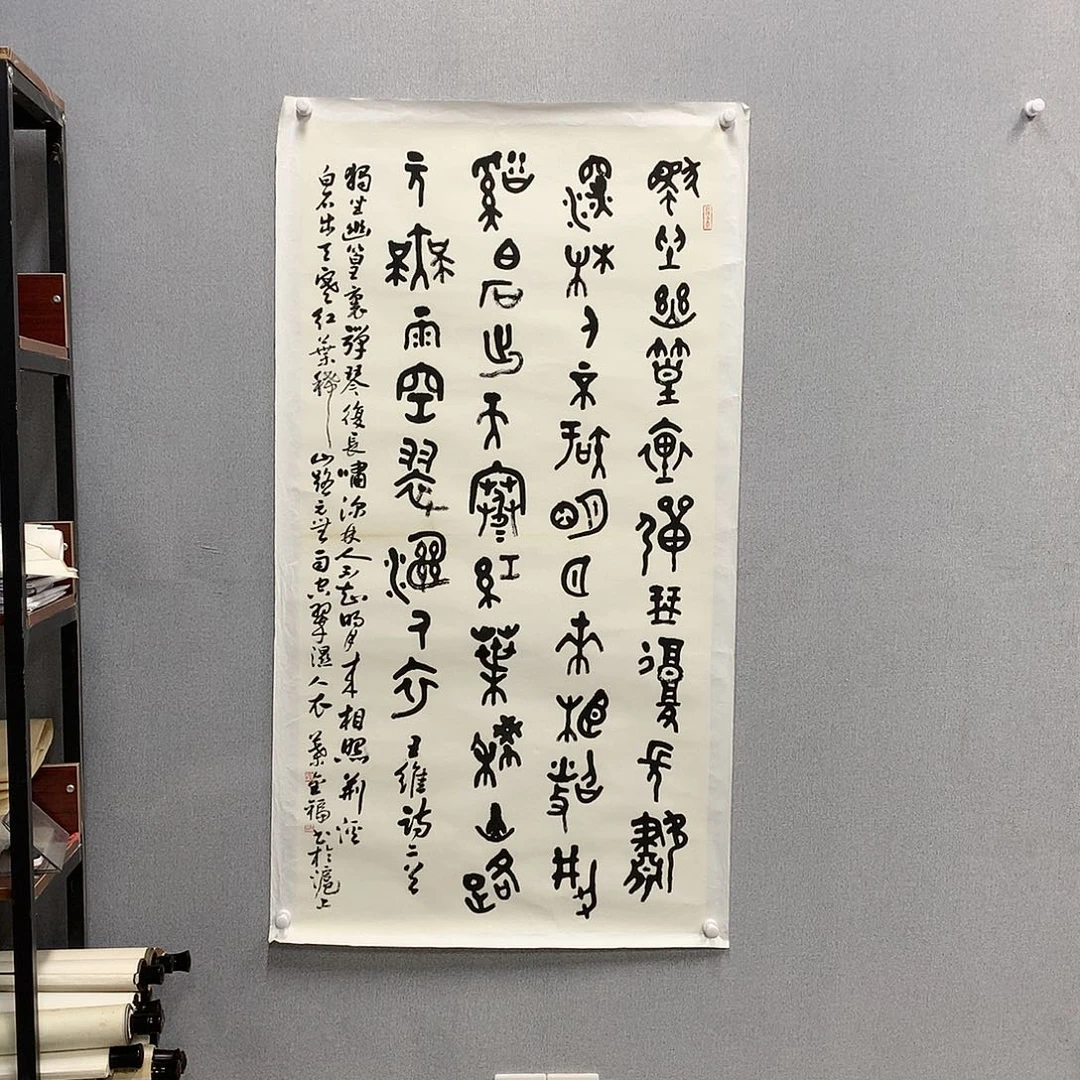 獨坐幽篁裏彈琴復長嘯
深林人不知明月來相照荊
谿白石出天寒紅葉稀山路
元無雨空翠濕人衣 王維詩二首
獨坐幽篁裏彈琴復長嘯深林人不知明月來相照荊溪
白石出天寒紅葉稀山路元無雨空翠濕人衣 金福書於滬上